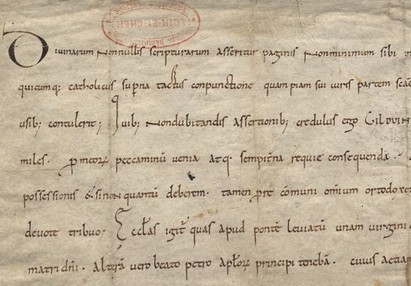 Diuinarum Nonnullis scripturarum asseritur paginis Nonminimum sibi
quicumq; catholicus sup̄na tactus conpunctione quampiam sui iuris partem
usib; contulerit; Quib; Nondubitandis assertionib; credulus ego GILDUIN
miles. p meoꝝ peccaminū uenia atq; sempit̄na requie consequenda.
possessionis & si non quartū deberem. tamen cōmuni omīum
deuote tribuo. Eccl̄as igit̄ quas apud pontē leuiatū unam uirgini
matri dn̄i. Alterā uero beato petro apl̄oꝝ principi tenebā. cuius